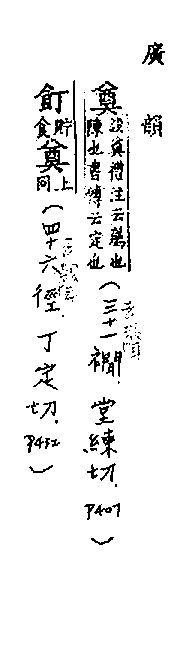 廣韻
奠 設奠禮注云薦也
陳也書傳云定也
(三十一襉.堂練切.P407)
飣 貯食
奠 上同
(四十六徑.丁定切.P432)